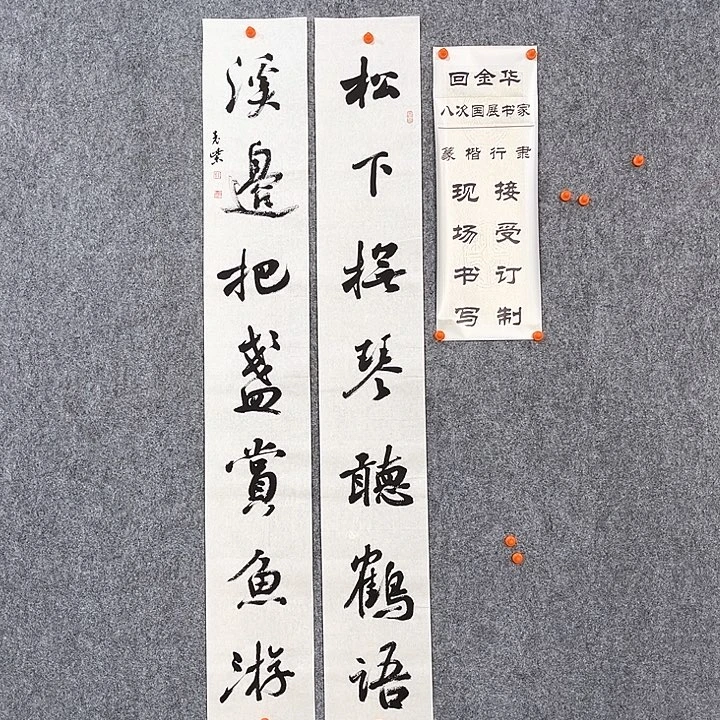 松下撫琴聽鶴語
溪邊把盞賞魚游
回金华
八次国展书家
篆楷行隶
接受订制
现场书写